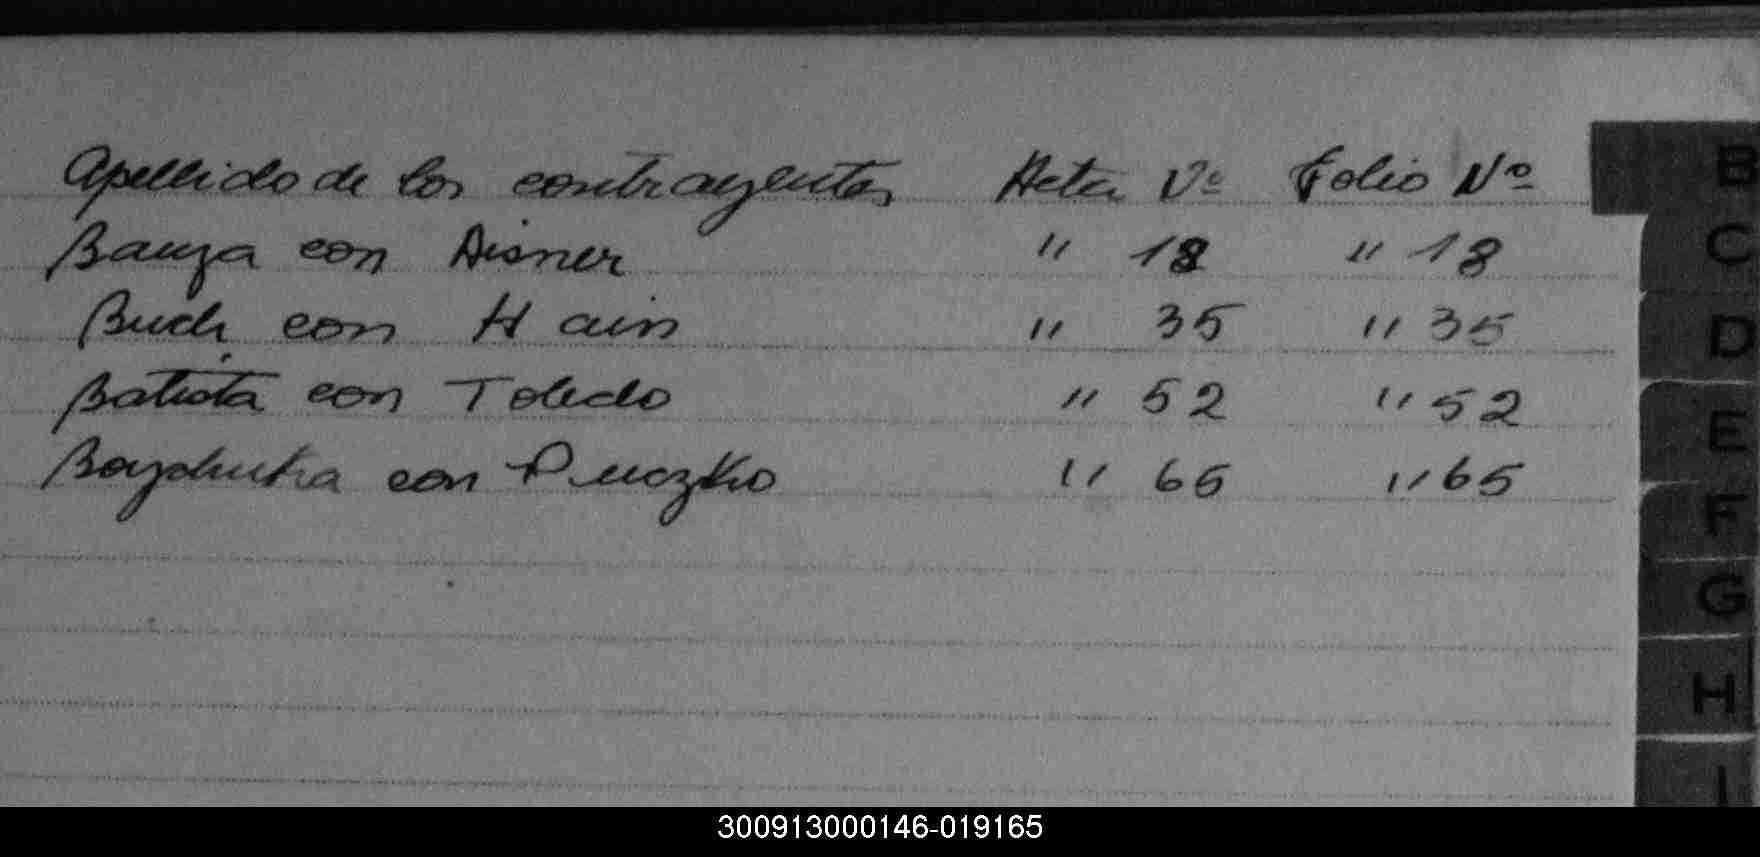 Apellido de los contrayentes Acta Nº Folio Nº B
Bauza con Aisner " 18 " 18 C
Buch con Hain " 35 " 35 D
Batista con Toledo " 52 " 52 E
con Puczko " 65 " 65 F
G
H
I
300913000146-019165